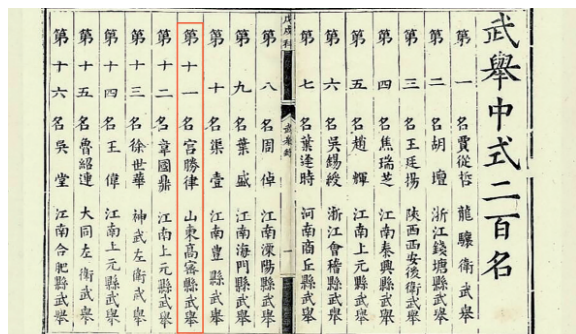 武舉中式二百名
第一名賈從哲 龍驤衛武舉
第二名胡壇 浙江錢塘縣武舉
第三名王廷揚 陝西西安後衛武舉
第四名焦瑞芝 江南泰興縣武舉
第五名趙輝 江南上元縣武舉
第六名吳錫綬 浙江會稽縣武舉
第七名葉逢時 河南商丘縣武舉
戊戌科
武舉錄
一
第八名周倬 江南溧陽縣武舉
第九名葉盛 江南海門縣武舉
第十名渠壹 江南豐縣武舉
第十一名宮勝律 山東高密縣武舉
第十二名章國鼎 江南上元縣武舉
第十三名徐世華 神武左衛武舉
第十四名王偉 江南上元縣武舉
第十五名魯紹連 大同左衛武舉
第十六名吳堂 江南合肥縣武舉